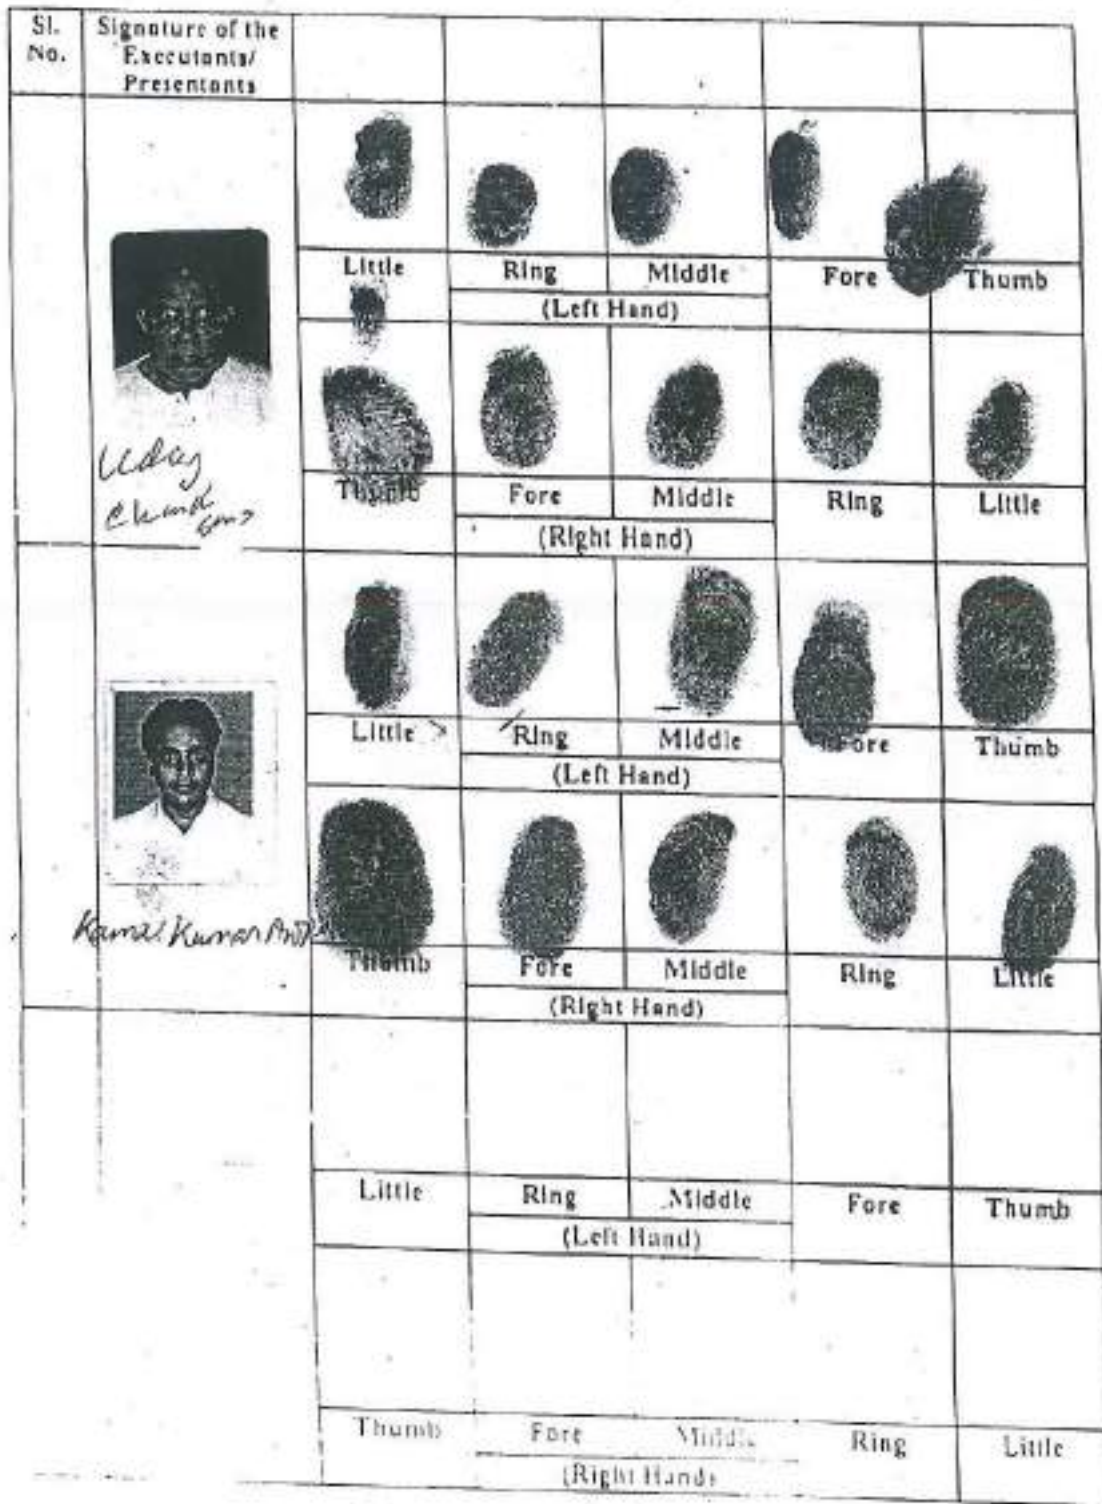 Sl. No.
Signature of the Executants/ Presentants
Little Ring Middle Fore Thumb
(Left Hand)
Uday
Chand
Thumb Fore Middle Ring Little
(Right Hand)
Little Ring Middle Fore Thumb
(Left Hand)
Kamal Kumar
Thumb Fore Middle Ring Little
(Right Hand)
Little Ring Middle Fore Thumb
(Left Hand)
Thumb Fore Middle Ring Little
(Right Hand)